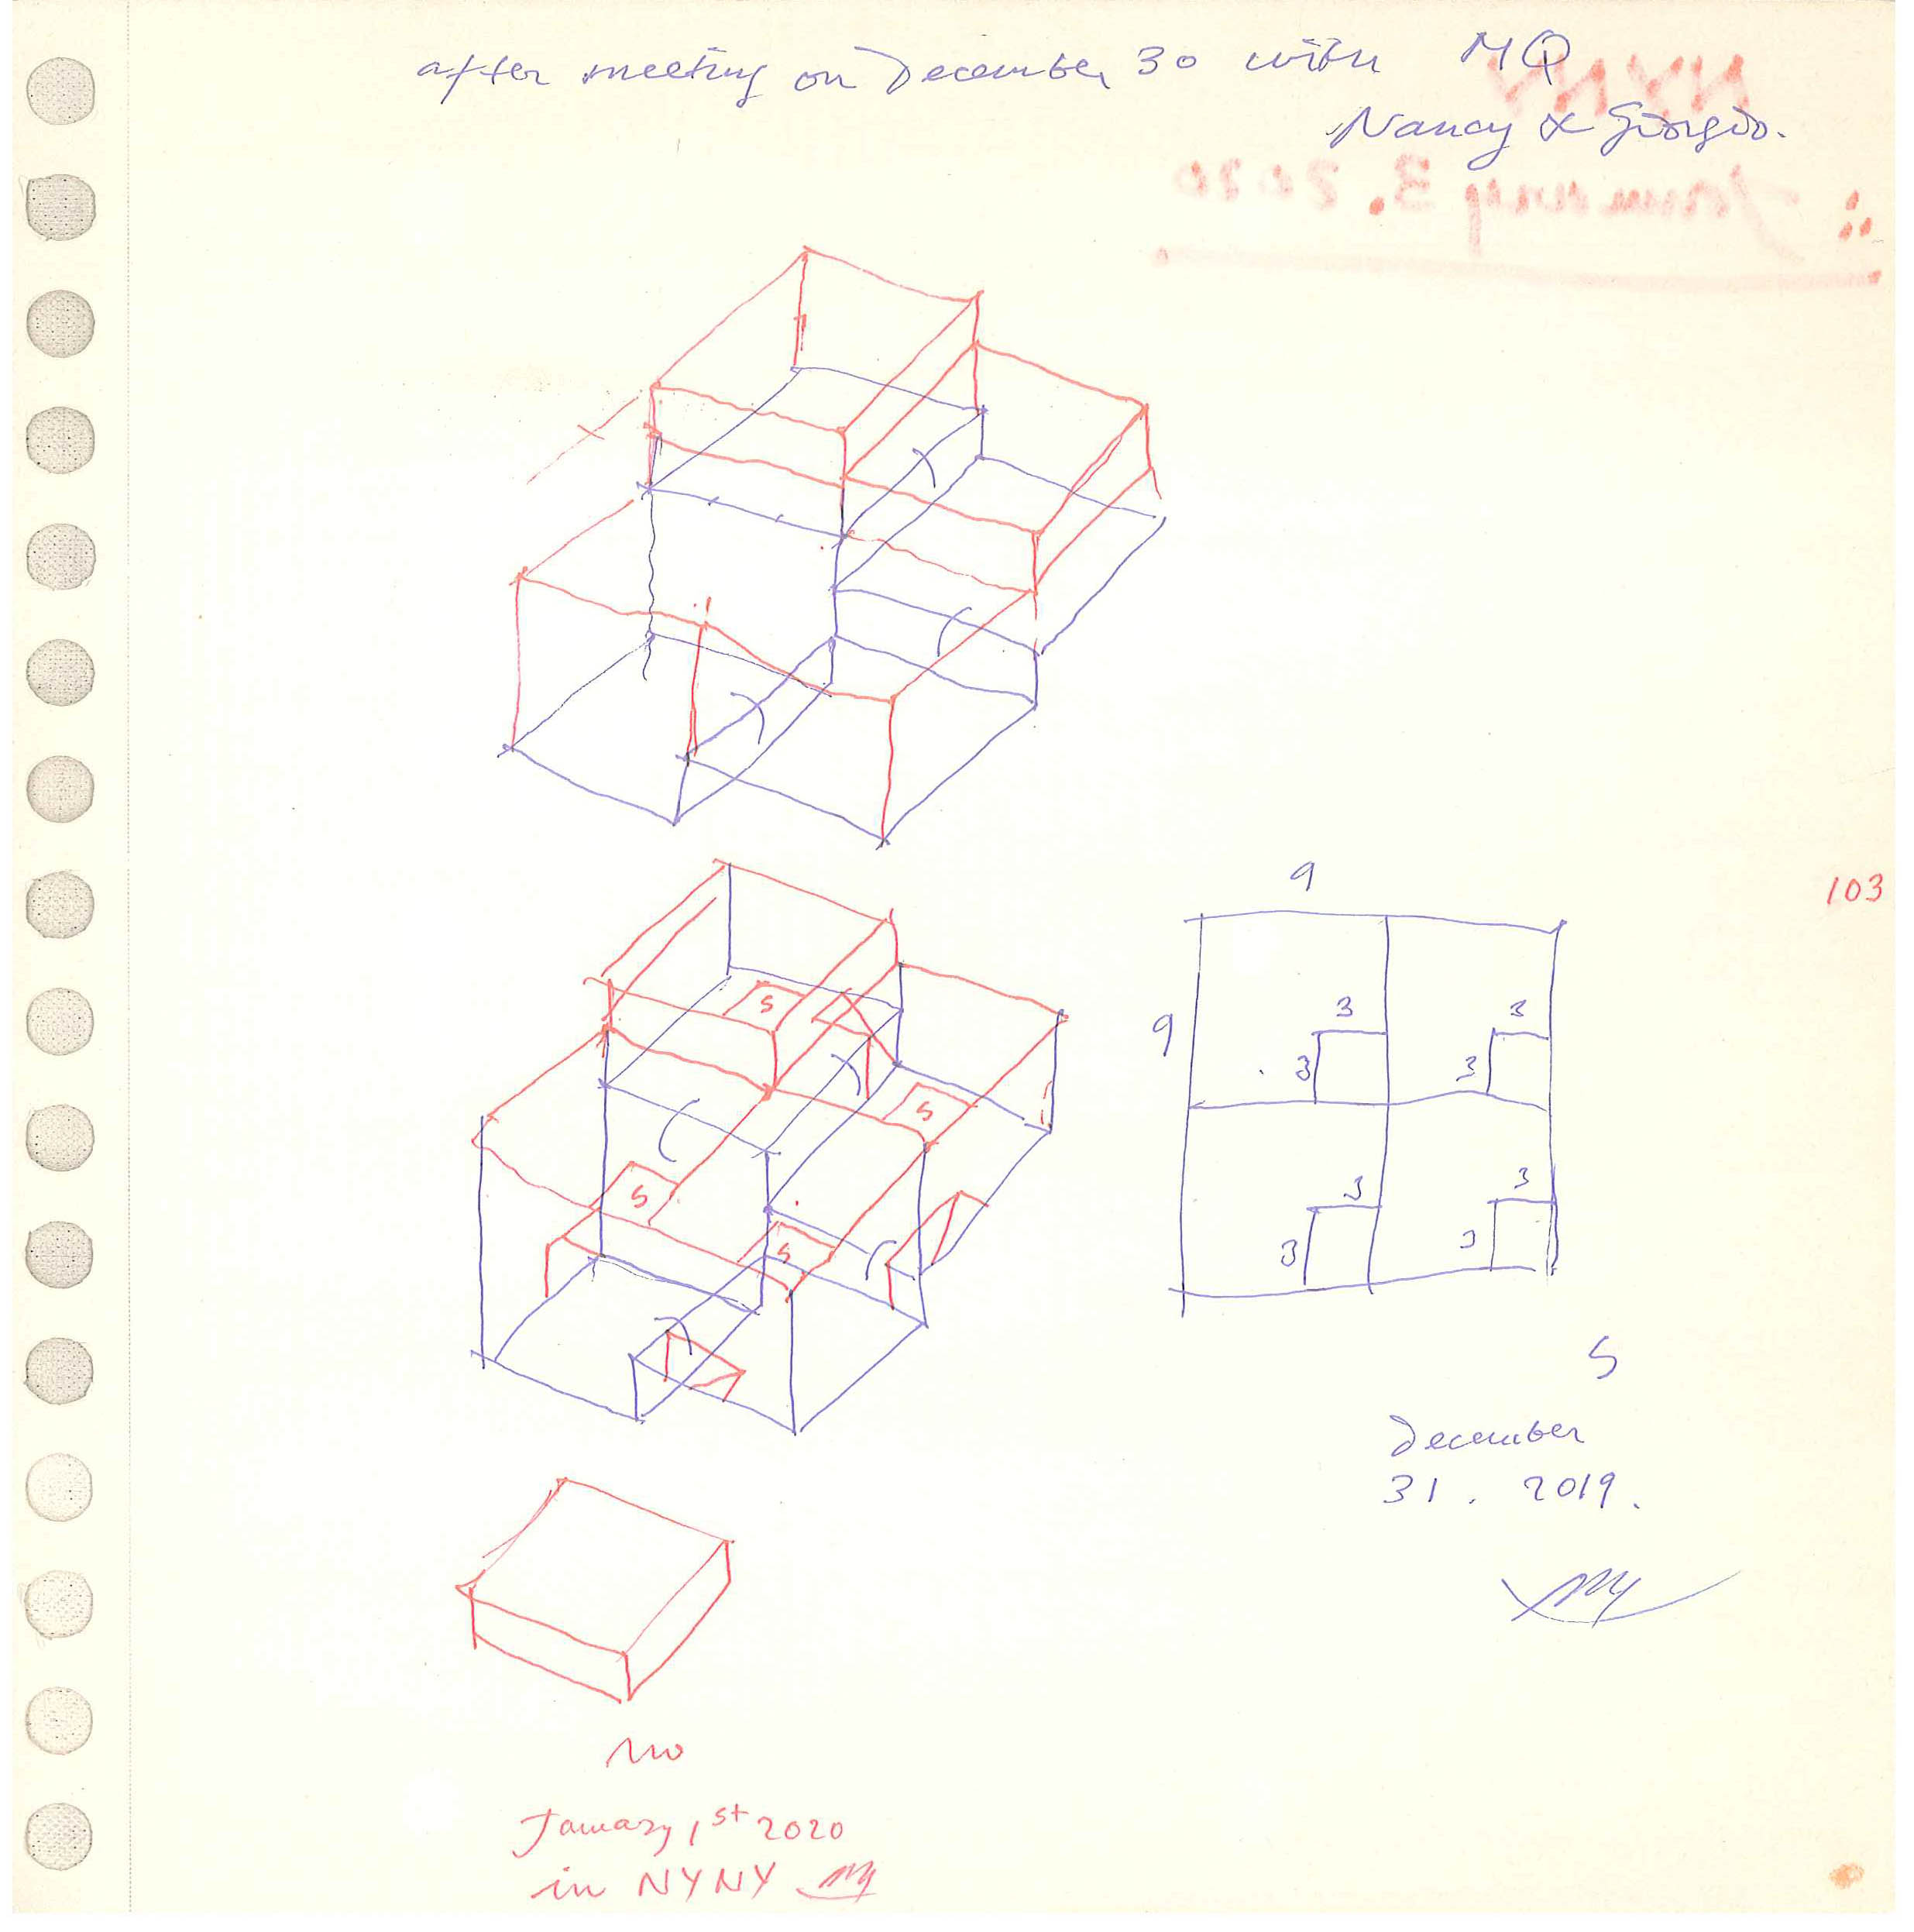 after meeting on December 30 with MQ
Nancy & Giorgio.
NYNY
January 3. 2020
103
9
9
3
3
3
3
S
S
S
S
3
3
3
3
S
December
31. 2019.
no
January 1st 2020
in NYNY